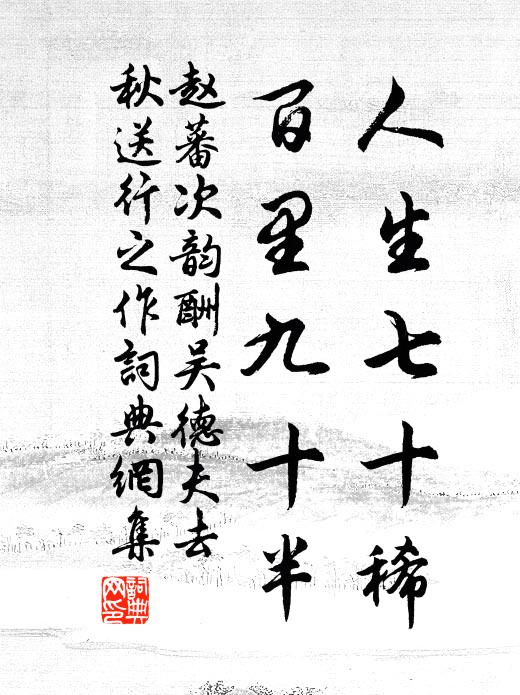 人生七十稀
百里九十半
赵蕃次韵酬吴德夫去
秋送行之作詞典網集
詞典
网印